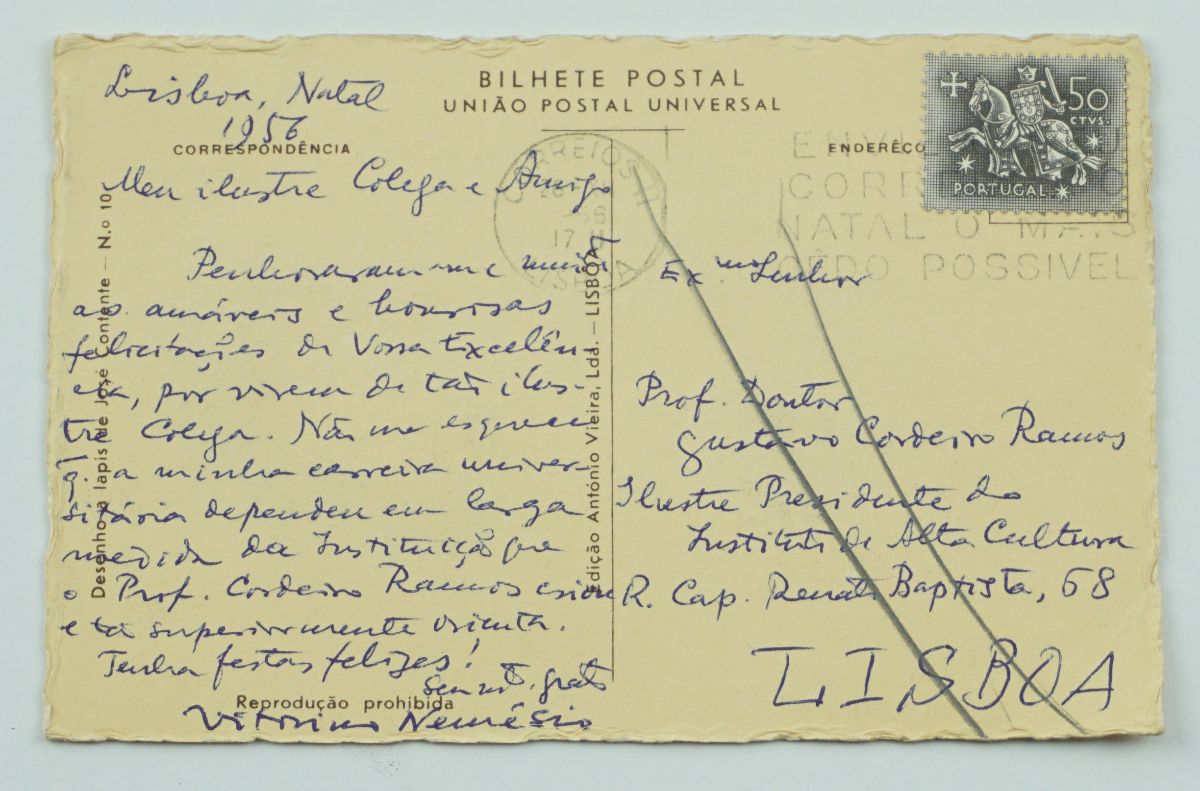 BILHETE POSTAL
UNIÃO POSTAL UNIVERSAL
CORRESPONDÊNCIA
Lisboa, Natal
1956
Meu ilustre Colega e Amigo
Penhoraram-me muito
as amáveis e honrosas
felicitações de Vossa Excelên-
cia, por virem de tão ilus-
tre Colega. Não me esqueceu
q. a minha carreira univer-
sitária dependeu em larga
medida da Instituição que
o Prof. Cordeiro Ramos criou
e tão superiormente orienta.
Tenha festas felizes!
grato
Vitorino Nemésio
Reprodução prohibida
Desenho a lapis de José Contente — N.o 10
Edição António Vieira, Lda. — LISBOA
CORREIOS
56
17
LISBOA
ENDERÊÇO
NATAL O MAIS
CÊDO POSSIVEL
50
CTVS.
PORTUGAL
Exmo Senhor
Prof. Doutor
Gustavo Cordeiro Ramos
Ilustre Presidente do
Instituto de Alta Cultura
R. Cap. Renato Baptista, 68
LISBOA